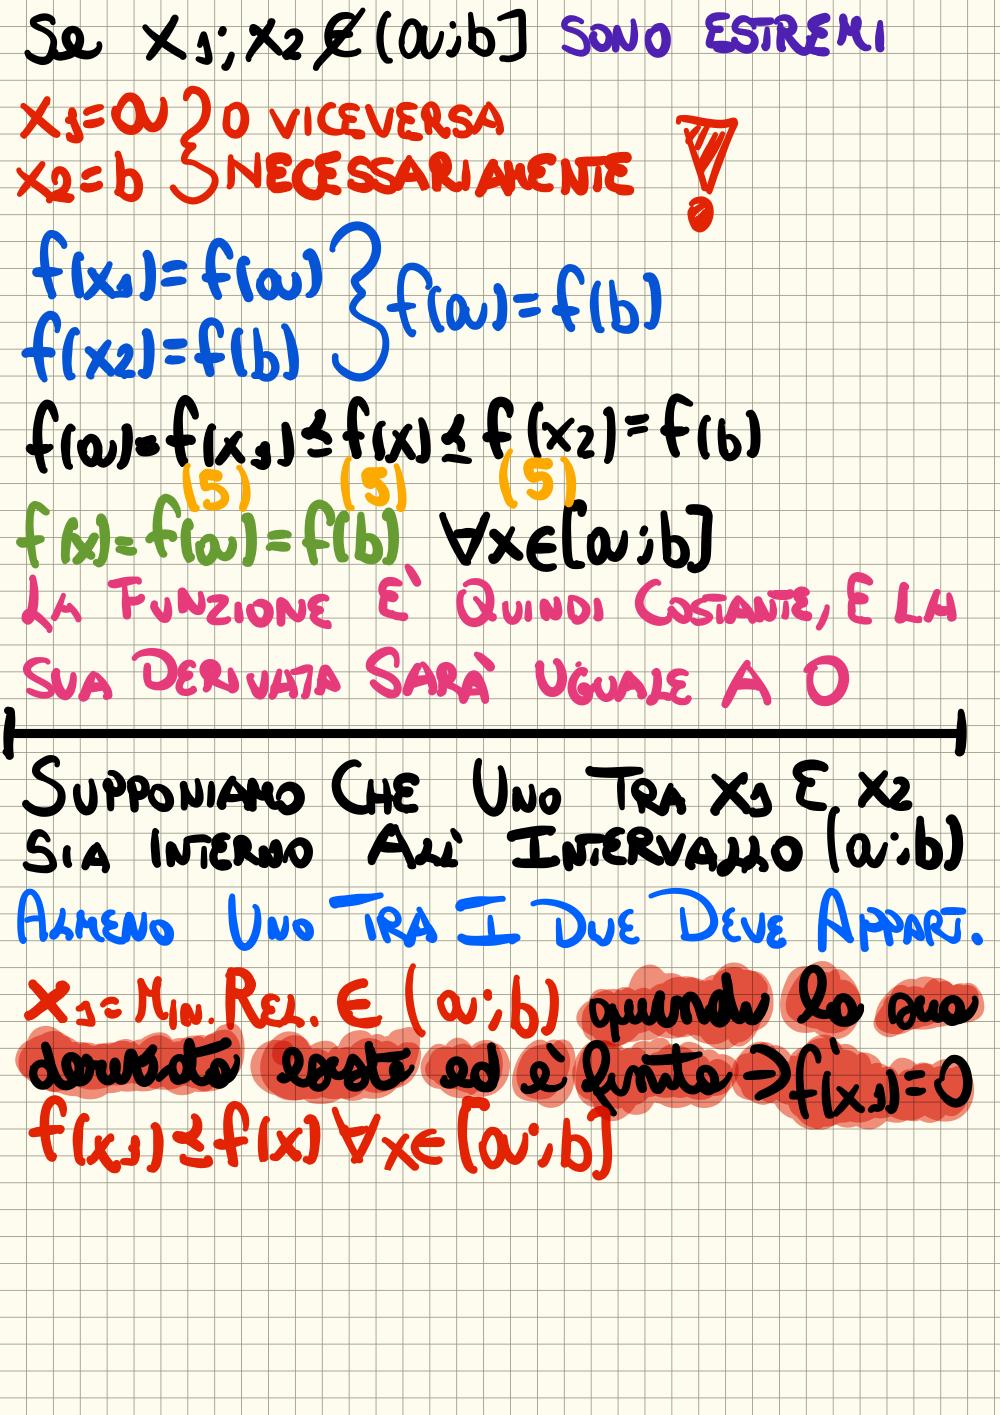 Se x1; x2 ∉ (a;b] SONO ESTREMI
x1=a } O VICEVERSA
x2=b } NECESSARIAMENTE !
f(x1)=f(a) } f(a)=f(b)
f(x2)=f(b)
f(a)=f(x1)≤f(x)≤f(x2)=f(b)
(5) (5) (5)
f(x)=f(a)=f(b) ∀x∈[a;b]
LA FUNZIONE E' QUINDI COSTANTE, E LA
SUA DERIVATA SARÀ UGUALE A 0
SUPPONIAMO CHE UNO TRA x1 E x2
SIA INTERNO ALL' INTERVALLO (a;b)
ALMENO UNO TRA I DUE DEVE APPART.
x1=MIN. REL. ∈ (a;b) quindi la sua
derivata esiste ed è finita ⇒ f'(x1)=0
f(x1)≤f(x) ∀x∈[a;b]